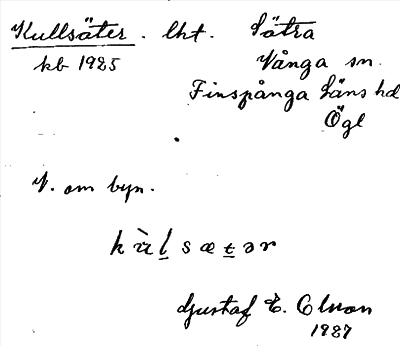 Kullsäter. lht. Sätra
kb 1925 Vånga sn.
Finspånga Läns hd
Ögl
V. om byn.
kùl̲sæt̲ər
Gustaf E. Olson
1927